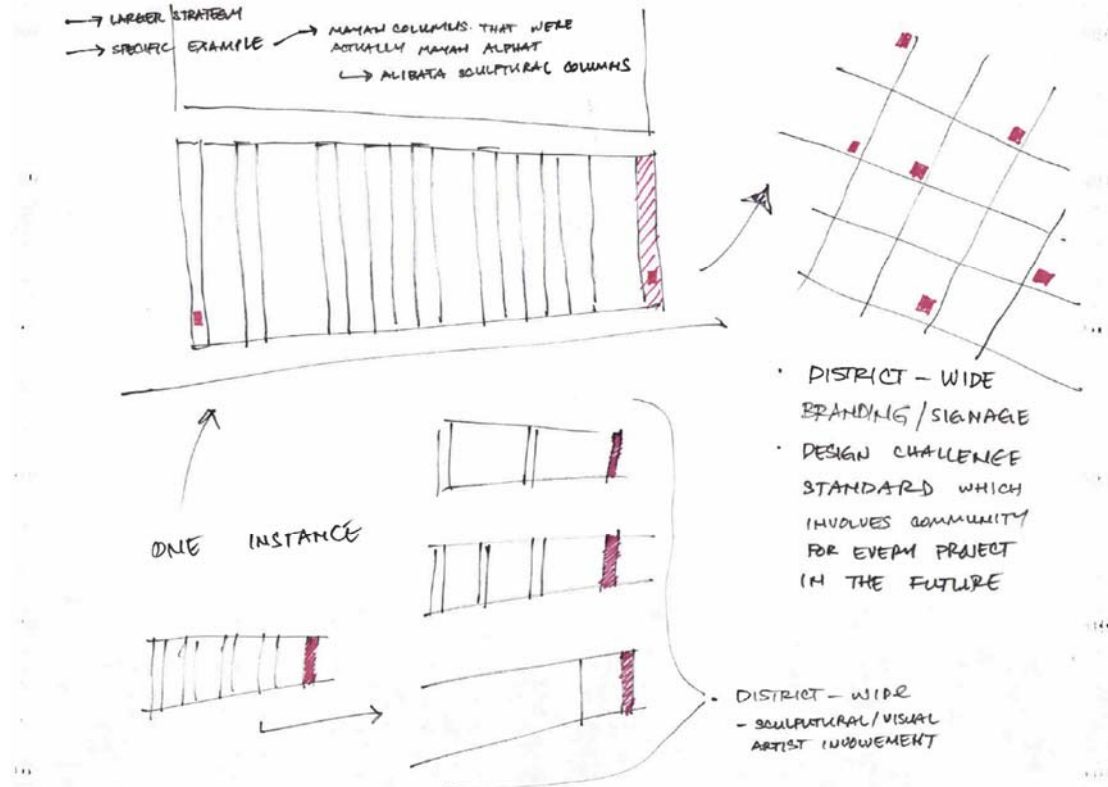 → LARGER STRATEGY
→ SPECIFIC EXAMPLE → MAYAN COLUMNS THAT WERE
ACTUALLY MAYAN ALPHAT
↳ ALIBATA SCULPTURAL COLUMNS
ONE INSTANCE
• DISTRICT-WIDE
BRANDING/SIGNAGE
• DESIGN CHALLENGE
STANDARD WHICH
INVOLVES COMMUNITY
FOR EVERY PROJECT
IN THE FUTURE
• DISTRICT-WIDE
- SCULPUTURAL/VISUAL
ARTIST INVOLVEMENT